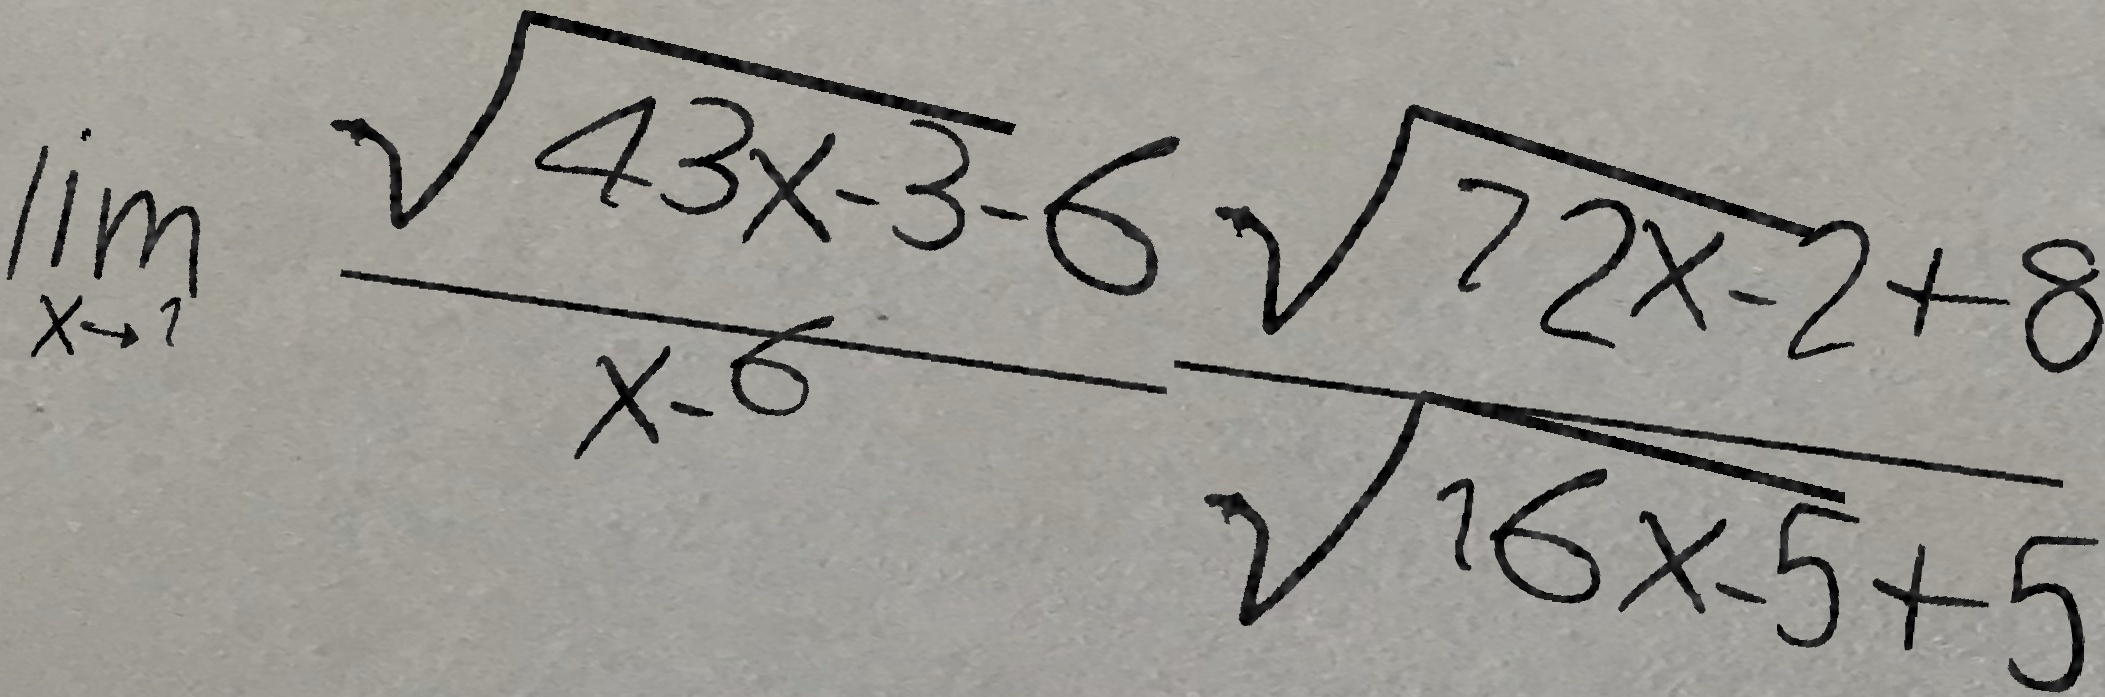 \lim_{x \to 1} \frac{\sqrt{43x-3}-6}{x-6} \frac{\sqrt{72x-2}+8}{\sqrt{16x-5}+5}